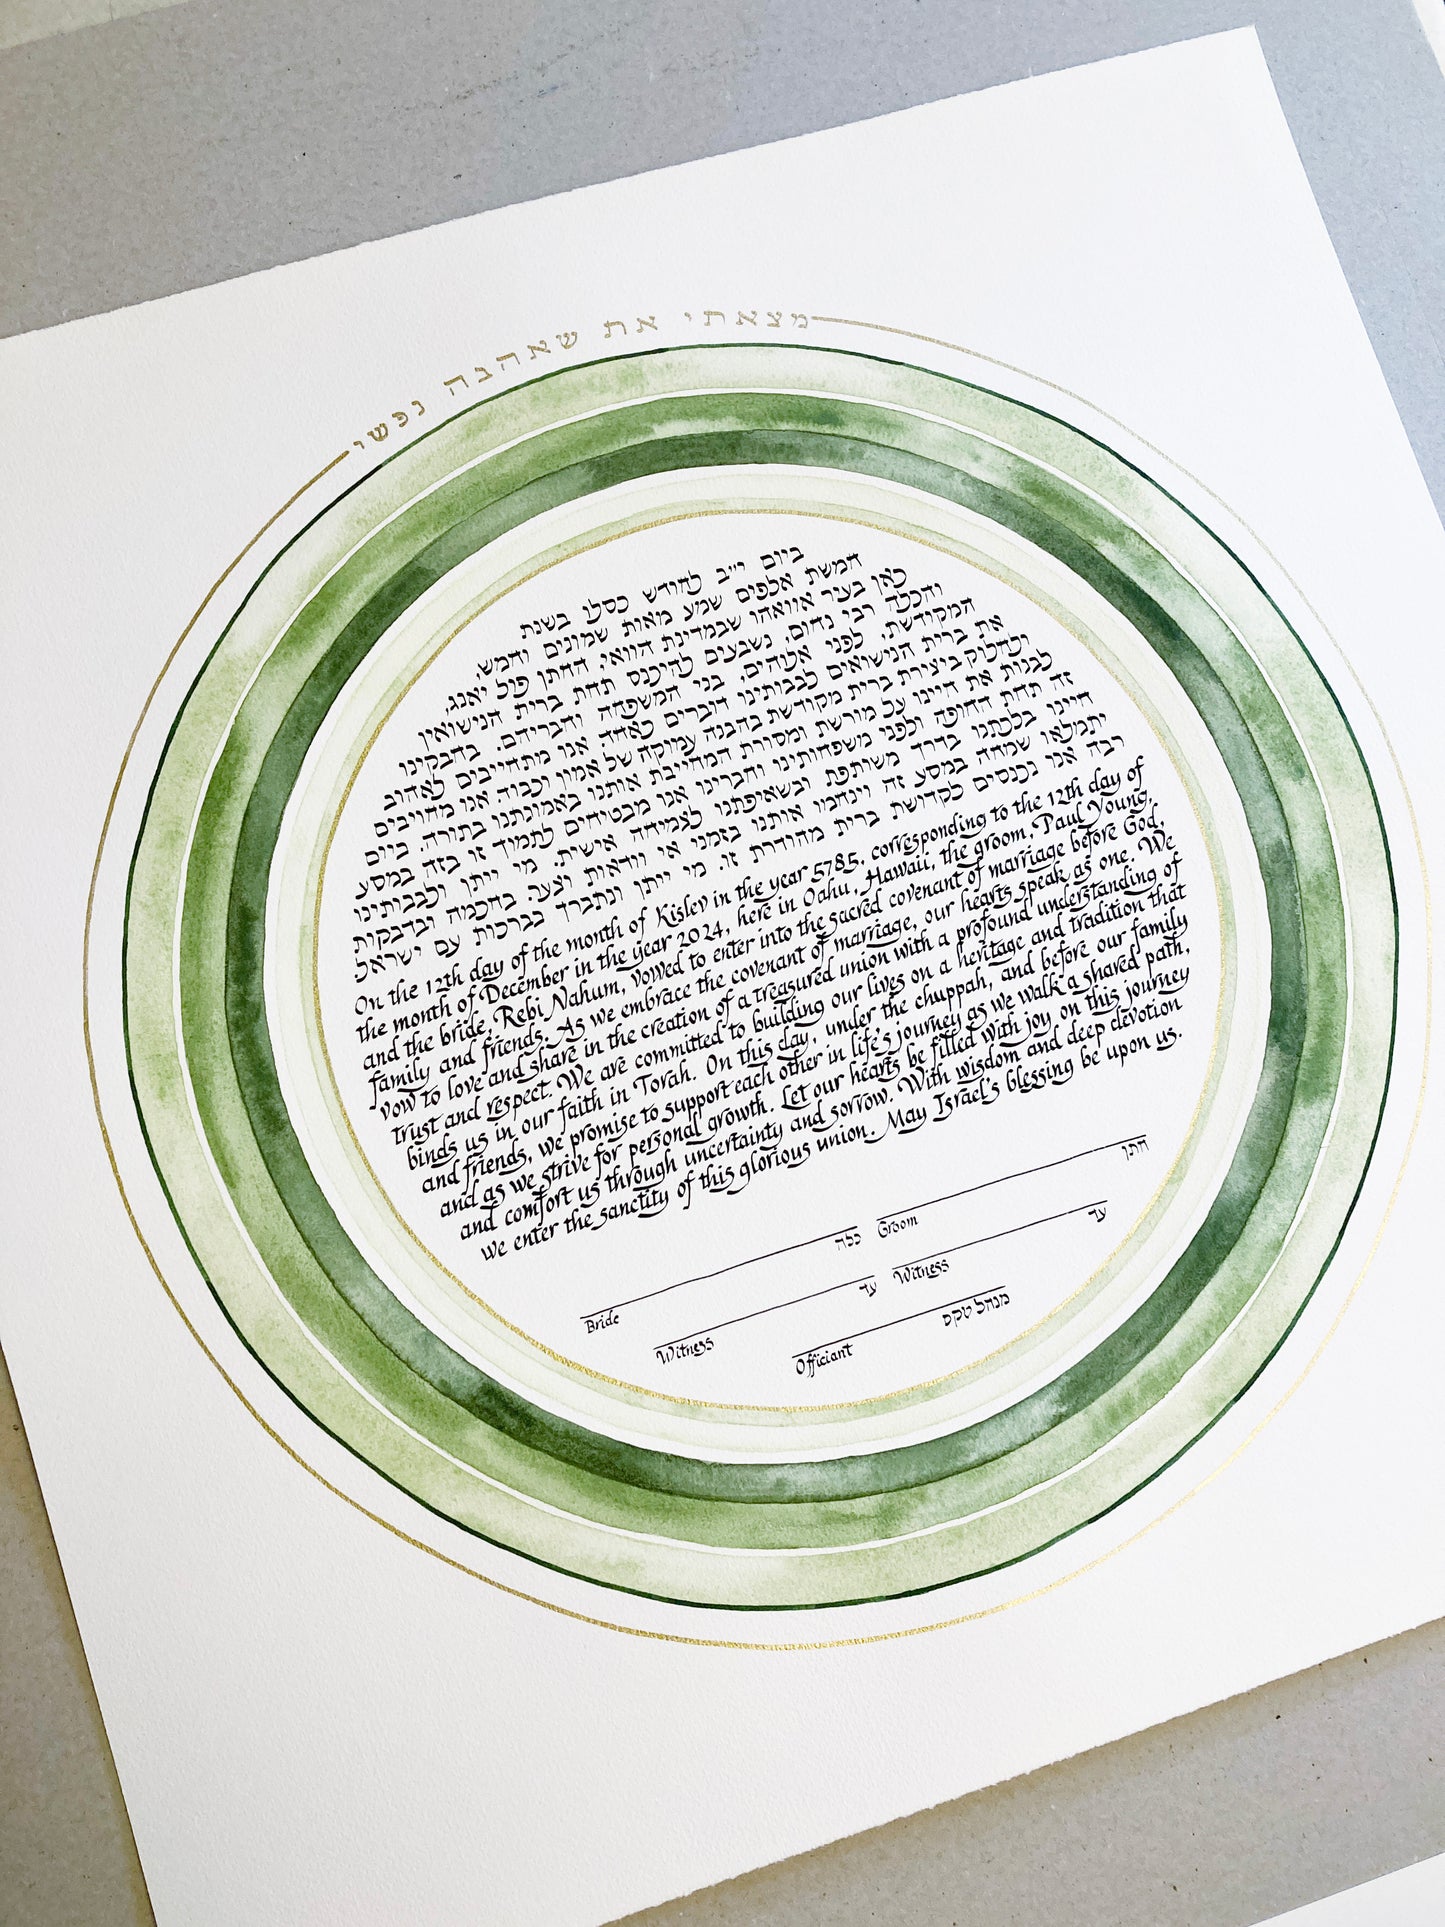 מצאתי את שאהבה נפשי
ביום י״ב לחודש כסלו בשנת
חמשת אלפים שבע מאות שמונים וחמש,
כאן בעיר אוואהו שבמדינת הוואי, החתן פול יאנג,
והכלה רבי נחום, נשבעים להיכנס תחת ברית הנישואין
המקודשת, לפני אלוהים, בני המשפחה וחבריהם. בחבקינו
את ברית הנישואים לבבותינו דוברים כאחד. אנו מתחייבים לאהוב
ולחלוק ביצירת ברית מקודשת בהבנה עמוקה של אמון וכבוד. אנו מחויבים
לבנות את חיינו על מורשת ומסורת המחייבת אותנו באמונתנו בתורה. ביום
זה תחת החופה ולפני משפחותינו וחברינו אנו מבטיחים לתמוך זו בזה במסע
חיינו בלכתנו בדרך משותפת ובשאיפתנו לצמיחה אישית. מי ייתן ולבבותינו
יתמלאו שמחה במסע זה וינחמו אותנו בזמני אי וודאות וצער. בחכמה ובדבקות
רבה אנו נכנסים לקדושת ברית מהודרת זו. מי ייתן ונתברך בברכות עם ישראל
On the 12th day of the month of Kislev in the year 5785, corresponding to the 12th day of
the month of December in the year 2024, here in Oahu, Hawaii, the groom, Paul Young,
and the bride, Rebi Nahum, vowed to enter into the sacred covenant of marriage before God,
family and friends. As we embrace the covenant of marriage, our hearts speak as one. We
vow to love and share in the creation of a treasured union with a profound understanding of
trust and respect. We are committed to building our lives on a heritage and tradition that
binds us in our faith in Torah. On this day, under the chuppah, and before our family
and friends, we promise to support each other in life's journey as we walk a shared path,
and as we strive for personal growth. Let our hearts be filled with joy on this journey
and comfort us through uncertainty and sorrow. With wisdom and deep devotion
we enter the sanctity of this glorious union. May Israel's blessing be upon us.
Bride כלה Groom חתן
Witness עד Witness עד
Officiant מנהל טקס